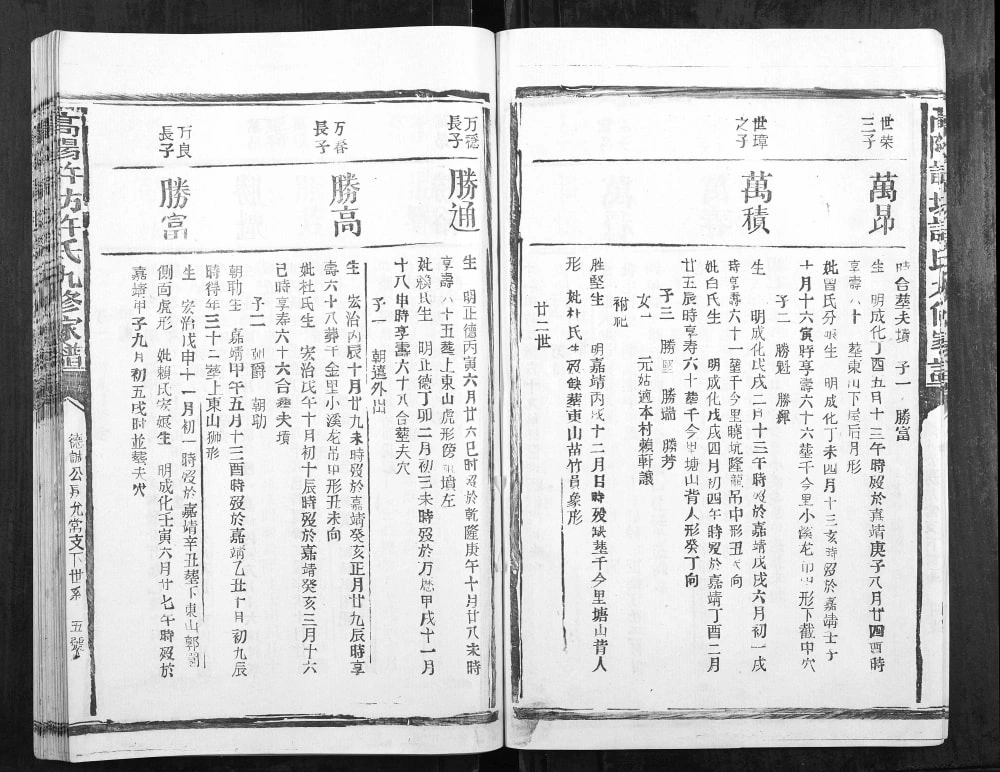 世榮
三子
萬昴
時合塟夫墳 子一 勝富
生 明成化丁酉五月十三午時歿於嘉靖庚子八月廿四酉時
享壽八十 塟東山下屋后月形
妣曾氏分娘生 明成化丁未四月十三亥時歿於嘉靖壬子
十月十六寅時享壽六十六塟千今里小溪龙形下截申穴
子二 勝魁 勝輝
世璋
之子
萬積
生 明成化戊戌二月十三午時歿於嘉靖戊戌六月初一戌
時享壽六十一塟千今里曉坑隆龍吊中形丑向
妣白氏生 明成化戊戌四月初四午時歿於嘉靖丁酉二月
廿五辰時享寿六十塟千今里塘山背人形癸丁向
子三 勝 勝瑞 勝芳
女一 元姑適本村賴軒讓
祔祀
勝堅生 明嘉靖丙戌十二月日時歿缺塟千今里塘山背人
形 妣杜氏生歿缺塟東山苗竹員象形
廿二世
万穏
長子
勝通
生 明正德丙寅六月廿六巳时歿於乾隆庚午十月廿八未時
享壽八十五塟上東山虎形傍墳左
妣賴氏生 明正德丁卯二月初三未時歿於万曆甲戌十一月
十八申時享壽六十八合塟夫穴
子一 朝遠外出
万春
長子
勝高
生 宏治丙辰十月廿九未時歿於嘉靖癸亥正月廿九辰時享
壽六十八葬千金里小溪龙吊甲形丑未向
妣杜氏生 宏治戊午十月初十辰時歿於嘉靖癸亥三月十六
己時享寿六十六合塟夫墳
子二 朝爵 朝助
朝助生 嘉靖甲午五月十三酉時歿於嘉靖乙丑十月初九辰
時得年三十二塟上東山獅形
万良
長子
勝富
生 宏治戊申十一月初一時歿於嘉靖辛丑塟下東山郭
側向虎形 妣賴氏娘生 明成化壬寅六月廿七午時歿於
嘉靖甲子九月初五戌时並塟夫穴
高陽許坊許氏九修家譜
德誠公房允常支下世系 五號